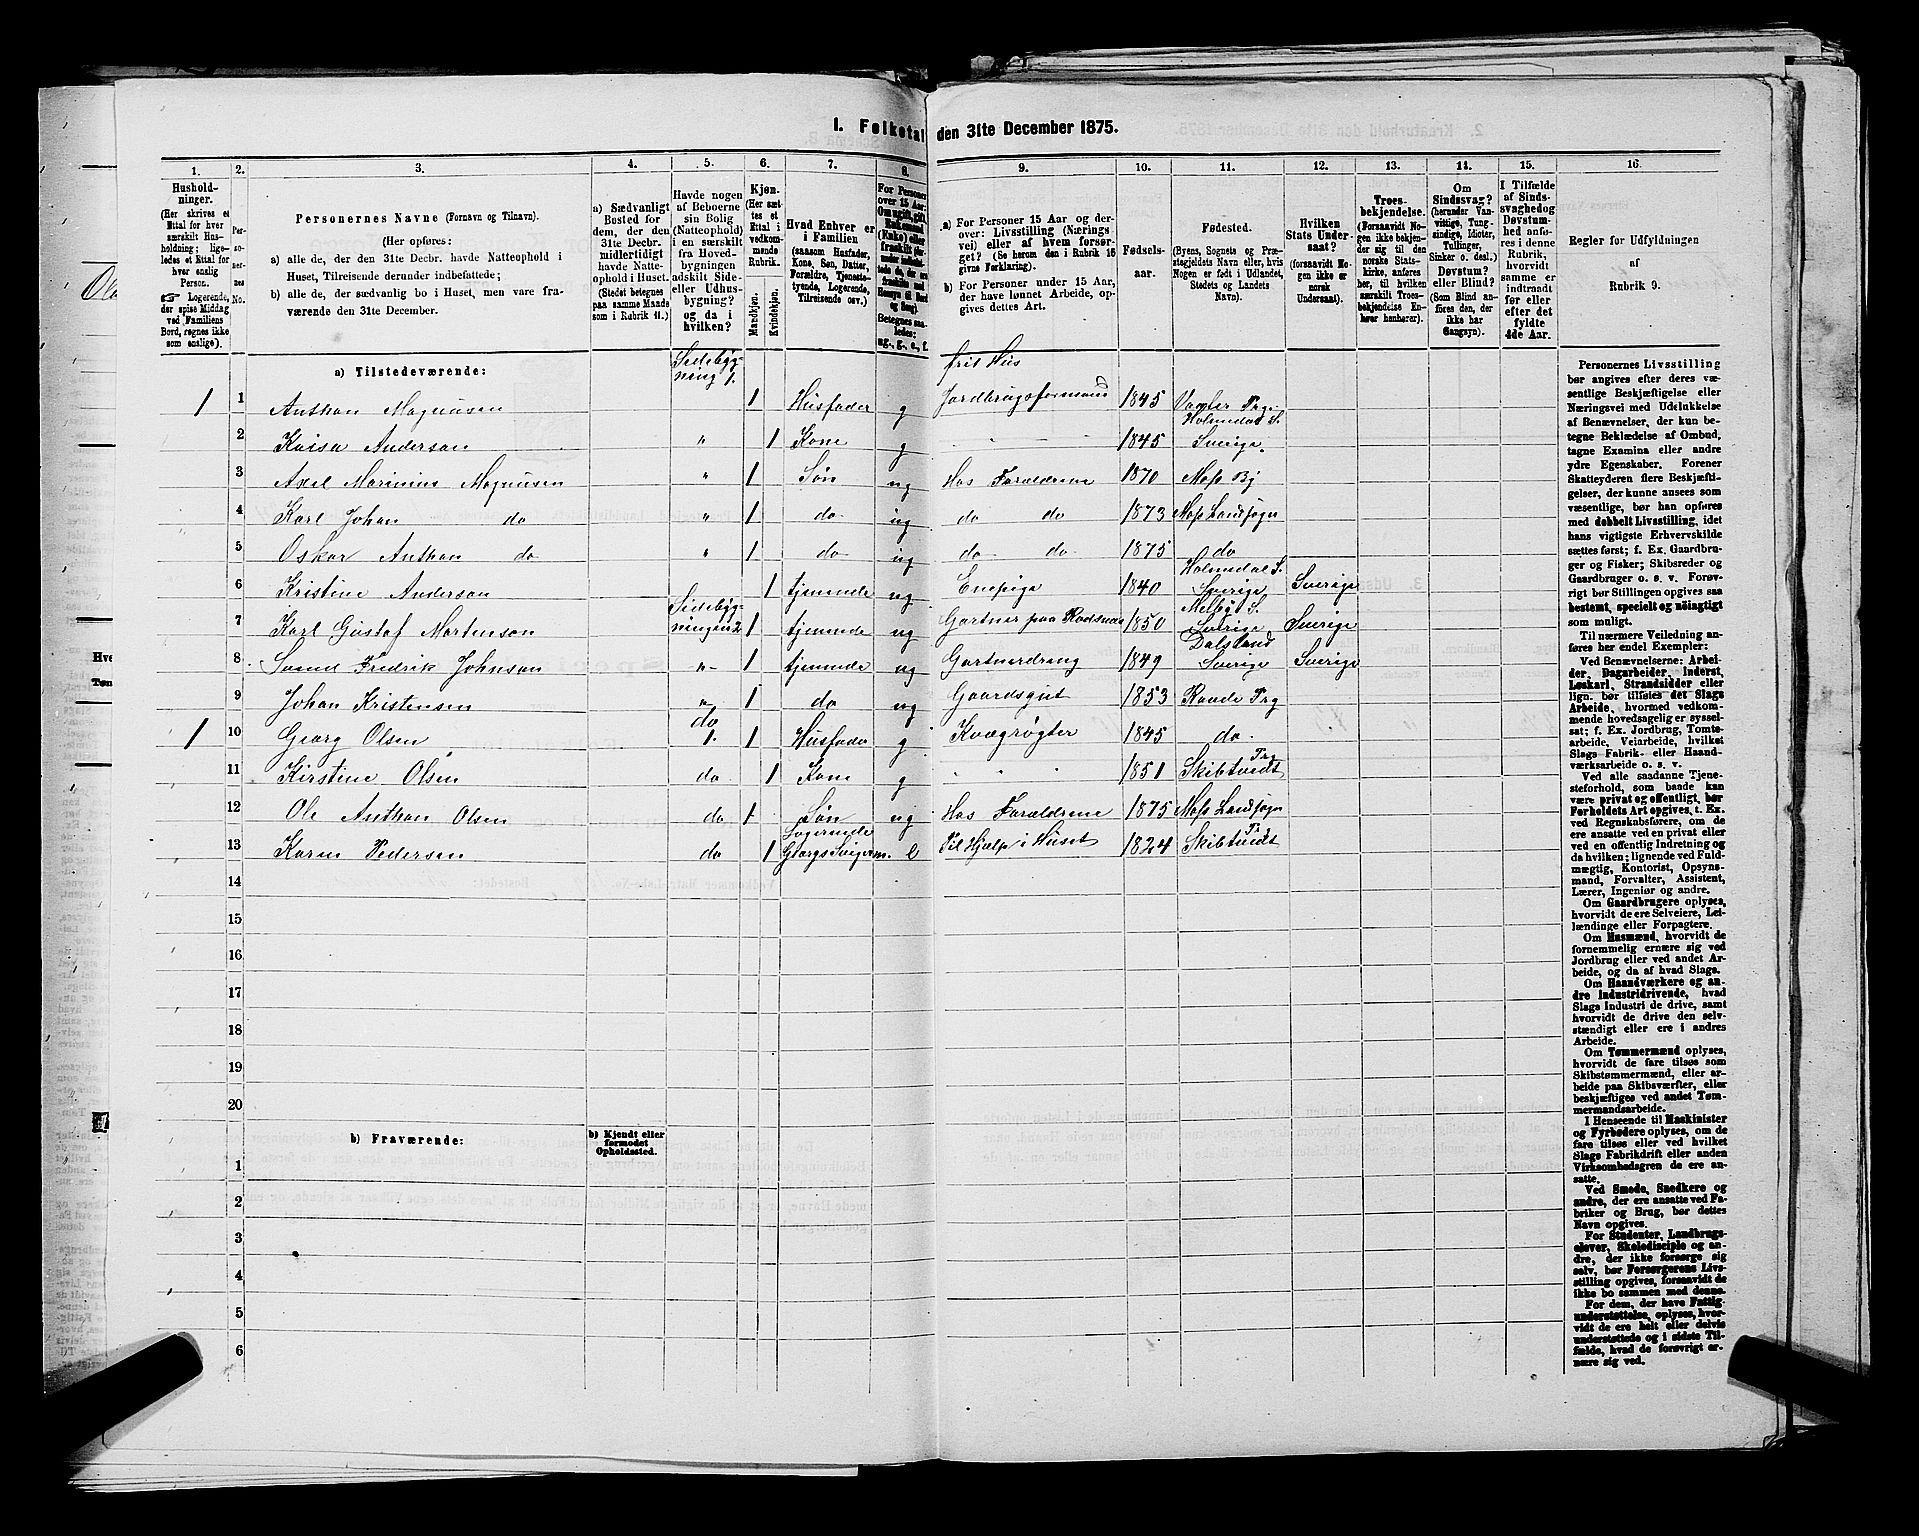 1. Folketal den 31te December 1875.
1. 2. 3. 4. 5. 6. 7. 8. 9. 10. 11. 12. 13. 14. 15. 16.
Hushold-
ninger.
(Her skrives et
Ettal for hver
særskilt Hus-
holdning; lige-
ledes et Ettal for
hver enslig
Person.
☞ Logerende,
der spise Middag
ved Familiens
Bord, regnes ikke
som enslige).
Per-
so-
ner-
nes
No.
Personernes Navne (Fornavn og Tilnavn).
(Her opføres:
a) alle de, der den 31te Decbr. havde Natteophold i
Huset, Tilreisende derunder indbefattede;
b) alle de, der sædvanlig bo i Huset, men vare fra-
værende den 31te December.
a) Sædvanligt
Bosted for
dem, der den
31te Decbr.
midlertidigt
havde Natte-
ophold i Huset.
(Stedet betegnes
paa samme Maade
som i Rubrik 11.)
Havde nogen
af Beboerne
sin Bolig
(Natteophold)
i en særskilt
fra Hoved-
bygningen
adskilt Side-
eller Udhus-
bygning?
og da i
hvilken?
Kjøn.
(Her sæt-
tes et
Ettal i
vedkom-
mende
Rubrik.
Mandkjøn.
Kvindekjøn.
Hvad Enhver er
i Familien
(saasom Husfader,
Kone, Søn, Datter,
Forældre, Tjeneste-
tyende, Logerende,
Tilreisende osv.)
For Personer
over 15 Aar:
Om ugift, gift,
Enkemand
(Enke) eller
fraskilt
Betegnes saa-
ledes:
ug., g., e., f.
a) For Personer 15 Aar og der-
over: Livsstilling (Nærings-
vei) eller af hvem forsør-
get? (Se herom den i Rubrik 16
givne Forklaring).
b) For Personer under 15 Aar,
der have lønnet Arbeide, op-
gives dettes Art.
Fødsels-
aar.
Fødested.
(Byens, Sognets og Præ-
stegjeldets Navn eller, hvis
Nogen er født i Udlandet,
Stedets og Landets
Navn).
Hvilken
Stats Under-
saat?
(forsaavidt No-
gen ikke er
norsk
Undersaat).
Troes-
bekjendelse.
(Forsaavidt No-
gen ikke bekjen-
der sig til den
norske Stats-
kirke, anføres
her, til hvilken
særskilt Troes-
bekjendelse En-
hver henhører).
Om
Sindssvag?
(herunder Van-
vittige, Tung-
sindige, Idioter,
Tullinger,
Sinker o. desl.)
Døvstum?
eller Blind?
(Som Blind an-
føres den, der
ikke har
Gangsyn).
I Tilfælde
af Sinds-
svaghed og
Døvstum-
hed anfø-
res i denne
Rubrik,
hvorvidt
samme er
indtraadt
før eller
efter det
fyldte
4de Aar.
Regler for Udfyldningen
af
Rubrik 9.
a) Tilstedeværende:
1 1 Anthon Magnusen Sidebyg-
ning 1. 1 Husfader g frit Hus
Jordbrugsformand 1845 Vansler Prg.
2 Kaisa Anderson " 1 Kone g 1845 Holmedal S.
Sverige.
3 Axel Marinius Magnusen " 1 Søn ug Hos Forældrene 1870 Moss By
4 Karl Johan do " 1 do ug do do 1873 Moss Landsogn
5 Oskar Anthon do " 1 do ug do do 1875 do
6 Kristine Anderson 1 tjenende ug Enepige 1840 Holmedal S.
Sverige Sverige
7 Karl Gustaf Mortenson Sidebyg-
ningen 2 1 tjenende ug Gartner paa 1850 Melby S.
Sverige Sverige
8 Svend Fredrik Johnson " 1 tjenende ug Gartnerdreng 1849 Dalsland
Sverige Sverige
9 Johan Kristensen " 1 do ug Gaardsgut 1853 Raade Prg
1 10 Georg Olsen do
1. 1 Husfader g Kvægrøgter 1845 do.
11 Kirstine Olsen do 1 Kone g 1851 Skibtvedt Prg
12 Ole Anthon Olsen do 1 Søn ug Hos Forældrene 1875 Moss Landsogn
13 Karen Pedersen do 1 Logerende
Georgs Svigerm. e Til Hjælp i Huset 1824 Skibtvedt
14
15
16
17
18
19
20
b) Fraværende:
b) Kjendt eller
formodet
Opholdssted.
1
2
3
4
5
6
Personernes Livsstilling
bør angives efter deres væ-
sentlige Beskjæftigelse eller
Næringsvei med Udelukkelse
af Benævnelser, der kun be-
tegne Beklædelse af Ombud,
tagne Examina eller andre
ydre Egenskaber. Forener
Skatteyderen flere Beskjæfti-
gelser, der kunne ansees som
væsentlige, bør han opføres
med dobbelt Livsstilling, idet
hans vigtigste Erhvervskilde
sættes først; f. Ex. Gaardbru-
ger og Fisker; Skibsreder og
Gaardbruger o. s. v. Forøv-
rigt bør Stillingen opgives saa
bestemt, specielt og nøiagtigt
som muligt.
Til nærmere Veiledning an-
føres her endel Exempler:
Ved Benævnelserne: Arbei-
der, Dagarbeider, Inderst,
Løskarl, Strandsidder eller
lign. bør tilføies det Slags
Arbeide, hvormed vedkom-
mende hovedsagelig er syssel-
sat; f. Ex. Jordbrug, Tomte-
arbeide, Veiarbeide, hvilket
Slags Fabrik- eller Haand-
værksarbeide o. s. v.
Ved alle saadanne Tjene-
steforhold, som baade kan
være privat og offentligt, bør
Forholdets Art opgives, t. Ex.
ved Regnskabsførere, om de
ere ansatte ved en privat eller
ved en offentlig Indretning og
da hvilken; lignende ved Fuld-
mægtig, Kontorist, Opsyns-
mand, Forvalter, Assistent,
Lærer, Ingeniør og andre.
Om Gaardbrugere oplyses,
hvorvidt de ere Selveiere, Lei-
lændinge eller Forpagtere.
Om Husmænd, hvorvidt de
fornemmelig ernære sig ved
Jordbrug eller ved andet Ar-
beide, og da af hvad Slags.
Om Haandværkere og an-
dre Industridrivende, hvad
Slags Industri de drive, samt
hvorvidt de drive den selv-
stændigt eller ere i andres
Arbeide.
Om Tømmermænd oplyses,
hvorvidt de fare tilsøs som
Skibstømmermænd, eller ar-
beide paa Skibsværfter, eller
beskjæftiges ved andet Tøm-
mermandsarbeide.
I Henseende til Maskinister
og Fyrbødere oplyses, om de
fare tilsøs eller ved hvilket
Slags Fabrikdrift eller anden
Virksomhedsgren de ere an-
satte.
Ved Smede, Snedkere og
andre, der ere ansatte ved Fa-
briker og Brug, bør dettes
Navn opgives.
For Studenter, Landbrugs-
elever, Skoledisciple og an-
dre, der ikke forsørge sig
selv, bør Forsørgerens Livs-
stilling opgives, forsaavidt de
ikke bo sammen med denne.
For dem, der have Fattig-
understøttelse, oplyses, hvor-
vidt de ere helt eller delvis
understøttede og i sidste Til-
fælde, hvad de forøvrigt er-
nære sig ved.